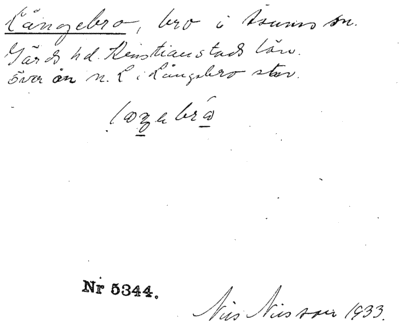 Långebro, bro i Everöds sn.
Gärds hd. Kristianstads län.
över ån n. L i Långebro stn.
Nr 5344.
Nils Nilsson 1933.